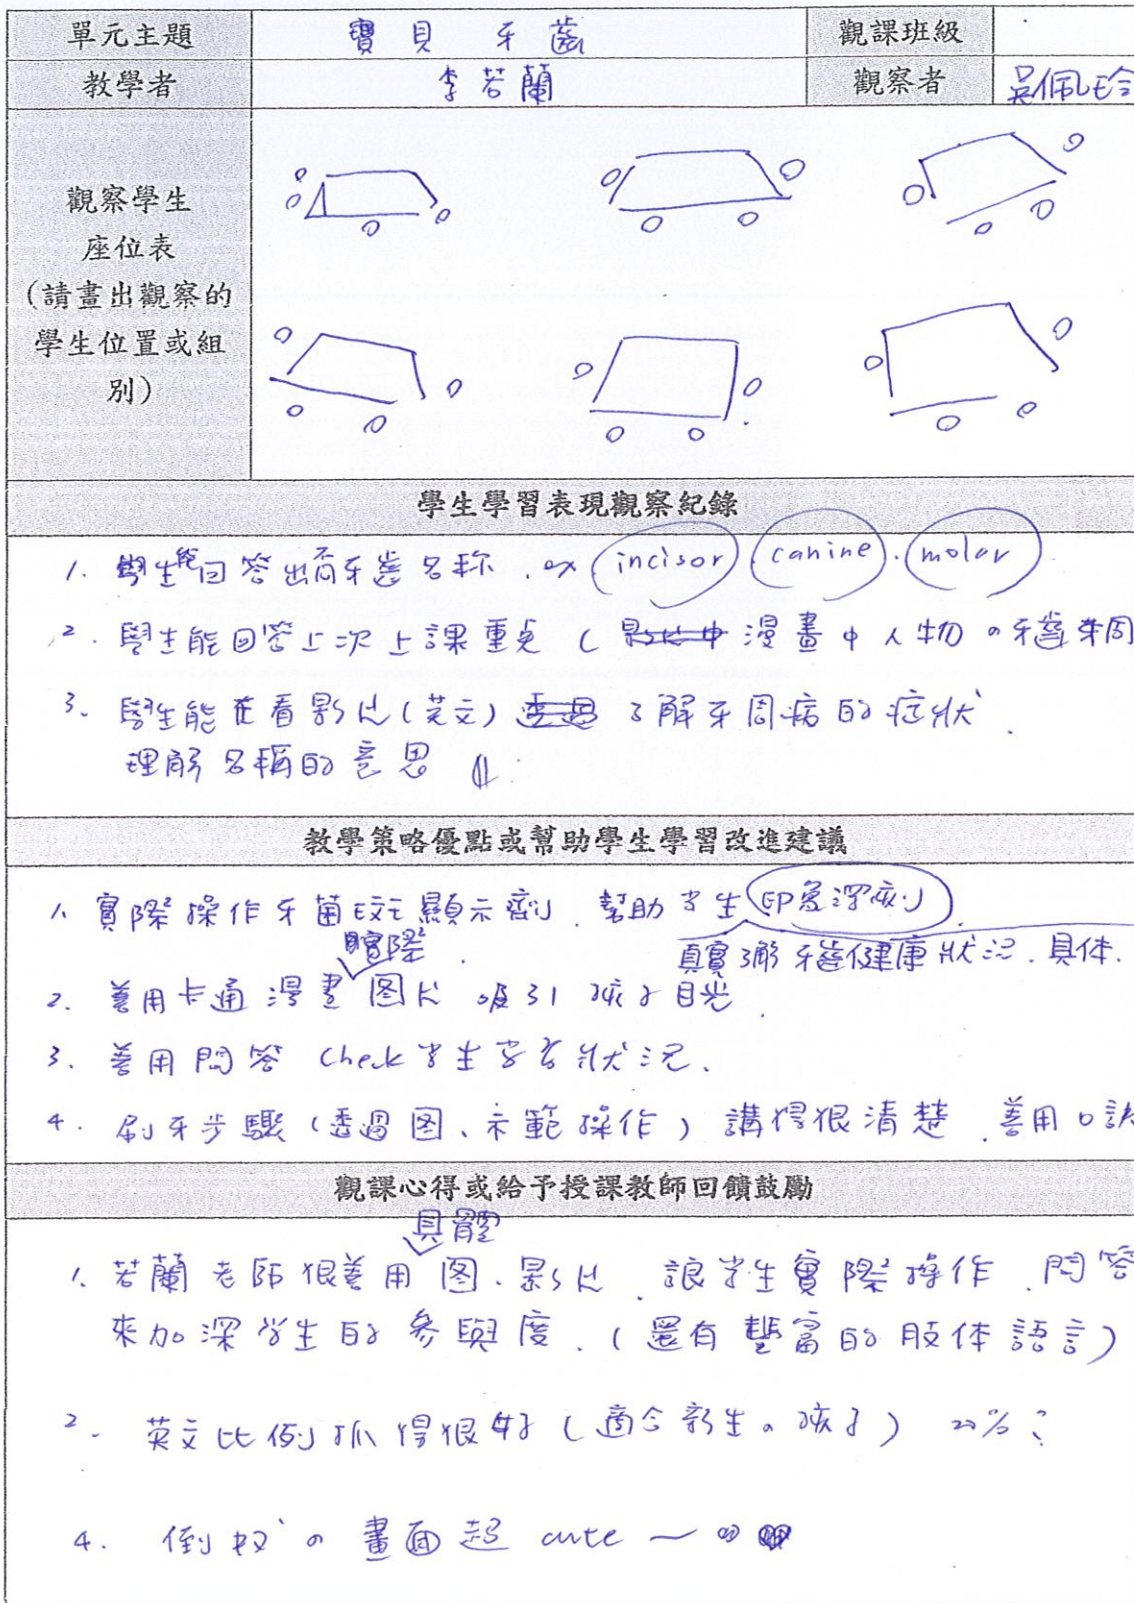 單元主題 寶貝牙齒 觀課班級
教學者 李若蘭 觀察者 吳佩玲
觀察學生
座位表
(請畫出觀察的
學生位置或組
別)
學生學習表現觀察紀錄
1. 學生能回答出有牙齒名称. ex incisor. canine. molar
2. 學生能回答上次上課重點 ( 漫畫中人物の牙齒牙周
3. 學生能在看影片(英文) 了解牙周病的症狀.
理解名稱的意思
教學策略優點或幫助學生學習改進建議
1. 實際操作牙菌斑顯示劑. 幫助学生印象深刻.
實際 真實了解牙齒健康狀況. 具体.
2. 善用卡通漫畫图片 吸引孩子目光.
3. 善用問答 check 学生学習狀況.
4. 刷牙步驟 (透過図、示範操作) 講得很清楚. 善用口訣
觀課心得或給予授課教師回饋鼓勵
具體
1. 若蘭老師很善用図、影片. 讓学生實際操作. 問答
來加深学生的參與度. (還有豐富的肢体語言)
2. 英文比例抓得很好 (適合新生の孩子) 20%?
4. 倒 の畫面超 cute ~